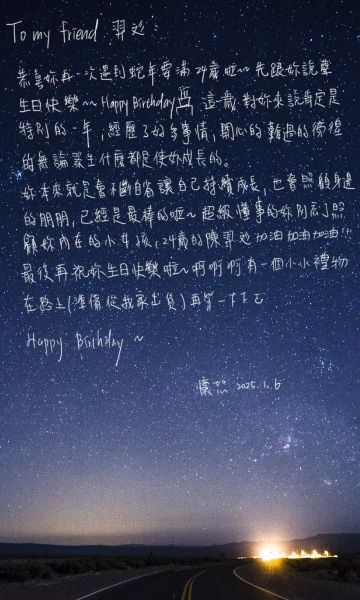 To my friend 羿近:
恭喜妳再一次遇到蛇年要滿24歲啦~先跟妳說聲
生日快樂~~Happy Birthday 這一歲對妳來說肯定是
特別的一年,經歷了好多事情,開心的難過的徬徨
的無論發生什麼都是使妳成長的。
妳本來就是會不斷自省讓自己持續成長,也會照顧身邊
的朋朋,已經是最棒的啦~超級懂事的妳別忘了照
顧妳內在的小女孩,24歲的陳羿近加油加油加油!!
最後再祝妳生日快樂啦~啊啊啊有一個小小禮物
在路上(準備從我家出貨)再等一下下
Happy Birthday~
2025.1.6